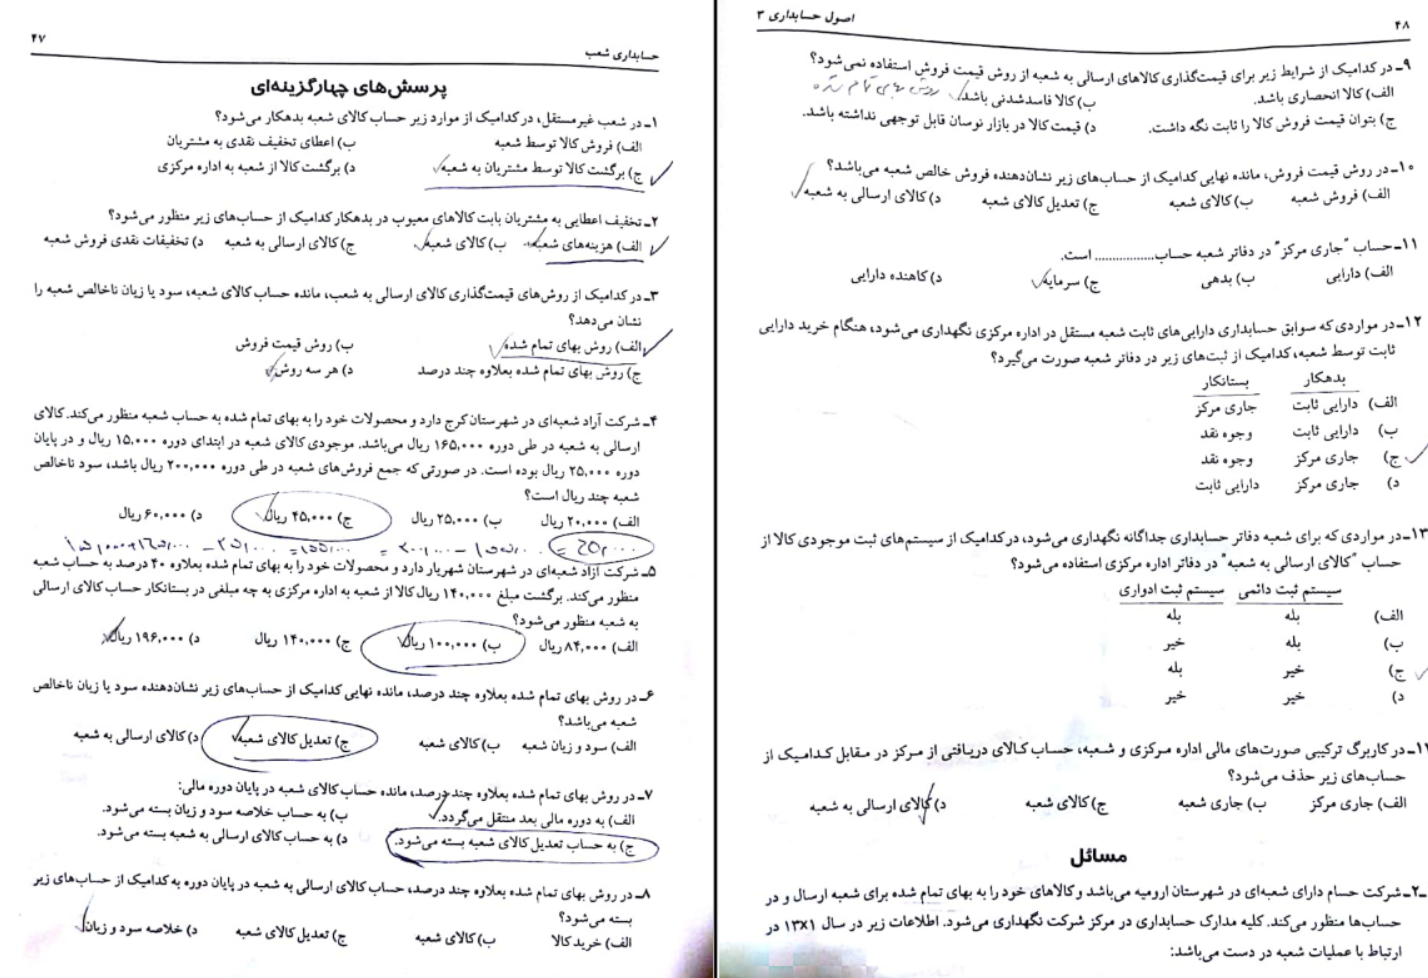 ۴۷
حسابداری شعب
پرسش‌های چهارگزینه‌ای
۱ـ در شعب غیرمستقل، در کدامیک از موارد زیر حساب کالای شعبه بدهکار می‌شود؟
الف) فروش کالا توسط شعبه ب) اعطای تخفیف نقدی به مشتریان
ج) برگشت کالا توسط مشتریان به شعبه د) برگشت کالا از شعبه به اداره مرکزی
۲ـ تخفیف اعطایی به مشتریان بابت کالاهای معیوب در بدهکار کدامیک از حساب‌های زیر منظور می‌شود؟
الف) هزینه‌های شعبه ب) کالای شعبه ج) کالای ارسالی به شعبه د) تخفیفات نقدی فروش شعبه
۳ـ در کدامیک از روش‌های قیمت‌گذاری کالای ارسالی به شعب، مانده حساب کالای شعبه، سود یا زیان ناخالص شعبه را
نشان می‌دهد؟
الف) روش بهای تمام شده ب) روش قیمت فروش
ج) روش بهای تمام شده بعلاوه چند درصد د) هر سه روش
۴ـ شرکت آراد شعبه‌ای در شهرستان کرج دارد و محصولات خود را به بهای تمام شده به حساب شعبه منظور می‌کند. کالای
ارسالی به شعبه در طی دوره ۱۶۵,۰۰۰ ریال می‌باشد. موجودی کالای شعبه در ابتدای دوره ۱۵,۰۰۰ ریال و در پایان
دوره ۲۵,۰۰۰ ریال بوده است. در صورتی که جمع فروش‌های شعبه در طی دوره ۲۰۰,۰۰۰ ریال باشد، سود ناخالص
شعبه چند ریال است؟
الف) ۲۰,۰۰۰ ریال ب) ۲۵,۰۰۰ ریال ج) ۴۵,۰۰۰ ریال د) ۶۰,۰۰۰ ریال
۵ـ شرکت آراد شعبه‌ای در شهرستان شهریار دارد و محصولات خود را به بهای تمام شده بعلاوه ۴۰ درصد به حساب شعبه
منظور می‌کند. برگشت مبلغ ۱۴۰,۰۰۰ ریال کالا از شعبه به اداره مرکزی به چه مبلغی در بستانکار حساب کالای ارسالی
به شعبه منظور می‌شود؟
الف) ۸۴,۰۰۰ ریال ب) ۱۰۰,۰۰۰ ریال ج) ۱۴۰,۰۰۰ ریال د) ۱۹۶,۰۰۰ ریال
۶ـ در روش بهای تمام شده بعلاوه چند درصد، مانده نهایی کدامیک از حساب‌های زیر نشان‌دهنده سود یا زیان ناخالص
شعبه می‌باشد؟
الف) سود و زیان شعبه ب) کالای شعبه ج) تعدیل کالای شعبه د) کالای ارسالی به شعبه
۷ـ در روش بهای تمام شده بعلاوه چند درصد، مانده حساب کالای شعبه در پایان دوره مالی:
الف) به دوره مالی بعد منتقل می‌گردد. ب) به حساب خلاصه سود و زیان بسته می‌شود.
ج) به حساب تعدیل کالای شعبه بسته می‌شود. د) به حساب کالای ارسالی به شعبه بسته می‌شود.
۸ـ در روش بهای تمام شده بعلاوه چند درصد، حساب کالای ارسالی به شعبه در پایان دوره به کدامیک از حساب‌های زیر
بسته می‌شود؟
الف) خرید کالا ب) کالای شعبه ج) تعدیل کالای شعبه د) خلاصه سود و زیان
۴۸
اصول حسابداری ۳
۹ـ در کدامیک از شرایط زیر برای قیمت‌گذاری کالاهای ارسالی به شعبه از روش قیمت فروش استفاده نمی‌شود؟
الف) کالا انحصاری باشد. ب) کالا فاسدشدنی باشد.
ج) بتوان قیمت فروش کالا را ثابت نگه داشت. د) قیمت کالا در بازار نوسان قابل توجهی نداشته باشد.
۱۰ـ در روش قیمت فروش، مانده نهایی کدامیک از حساب‌های زیر نشان‌دهنده فروش خالص شعبه می‌باشد؟
الف) فروش شعبه ب) کالای شعبه ج) تعدیل کالای شعبه د) کالای ارسالی به شعبه
۱۱ـ حساب "جاری مرکز" در دفاتر شعبه حساب................. است.
الف) دارایی ب) بدهی ج) سرمایه د) کاهنده دارایی
۱۲ـ در مواردی که سوابق حسابداری دارایی‌های ثابت شعبه مستقل در اداره مرکزی نگهداری می‌شود، هنگام خرید دارایی
ثابت توسط شعبه، کدامیک از ثبت‌های زیر در دفاتر شعبه صورت می‌گیرد؟
بدهکار بستانکار
الف) دارایی ثابت جاری مرکز
ب) دارایی ثابت وجوه نقد
ج) جاری مرکز وجوه نقد
د) جاری مرکز دارایی ثابت
۱۳ـ در مواردی که برای شعبه دفاتر حسابداری جداگانه نگهداری می‌شود، در کدامیک از سیستم‌های ثبت موجودی کالا از
حساب "کالای ارسالی به شعبه" در دفاتر اداره مرکزی استفاده می‌شود؟
سیستم ثبت دائمی سیستم ثبت ادواری
الف) بله بله
ب) بله خیر
ج) خیر بله
د) خیر خیر
ـ در کاربرگ ترکیبی صورت‌های مالی اداره مرکزی و شعبه، حساب کالای دریافتی از مرکز در مقابل کدامیک از
حساب‌های زیر حذف می‌شود؟
الف) جاری مرکز ب) جاری شعبه ج) کالای شعبه د) کالای ارسالی به شعبه
مسائل
ـ۲ـ شرکت حسام دارای شعبه‌ای در شهرستان ارومیه می‌باشد و کالاهای خود را به بهای تمام شده برای شعبه ارسال و در
حساب‌ها منظور می‌کند. کلیه مدارک حسابداری در مرکز شرکت نگهداری می‌شود. اطلاعات زیر در سال ۱۳x۱ در
ارتباط با عملیات شعبه در دست می‌باشد: